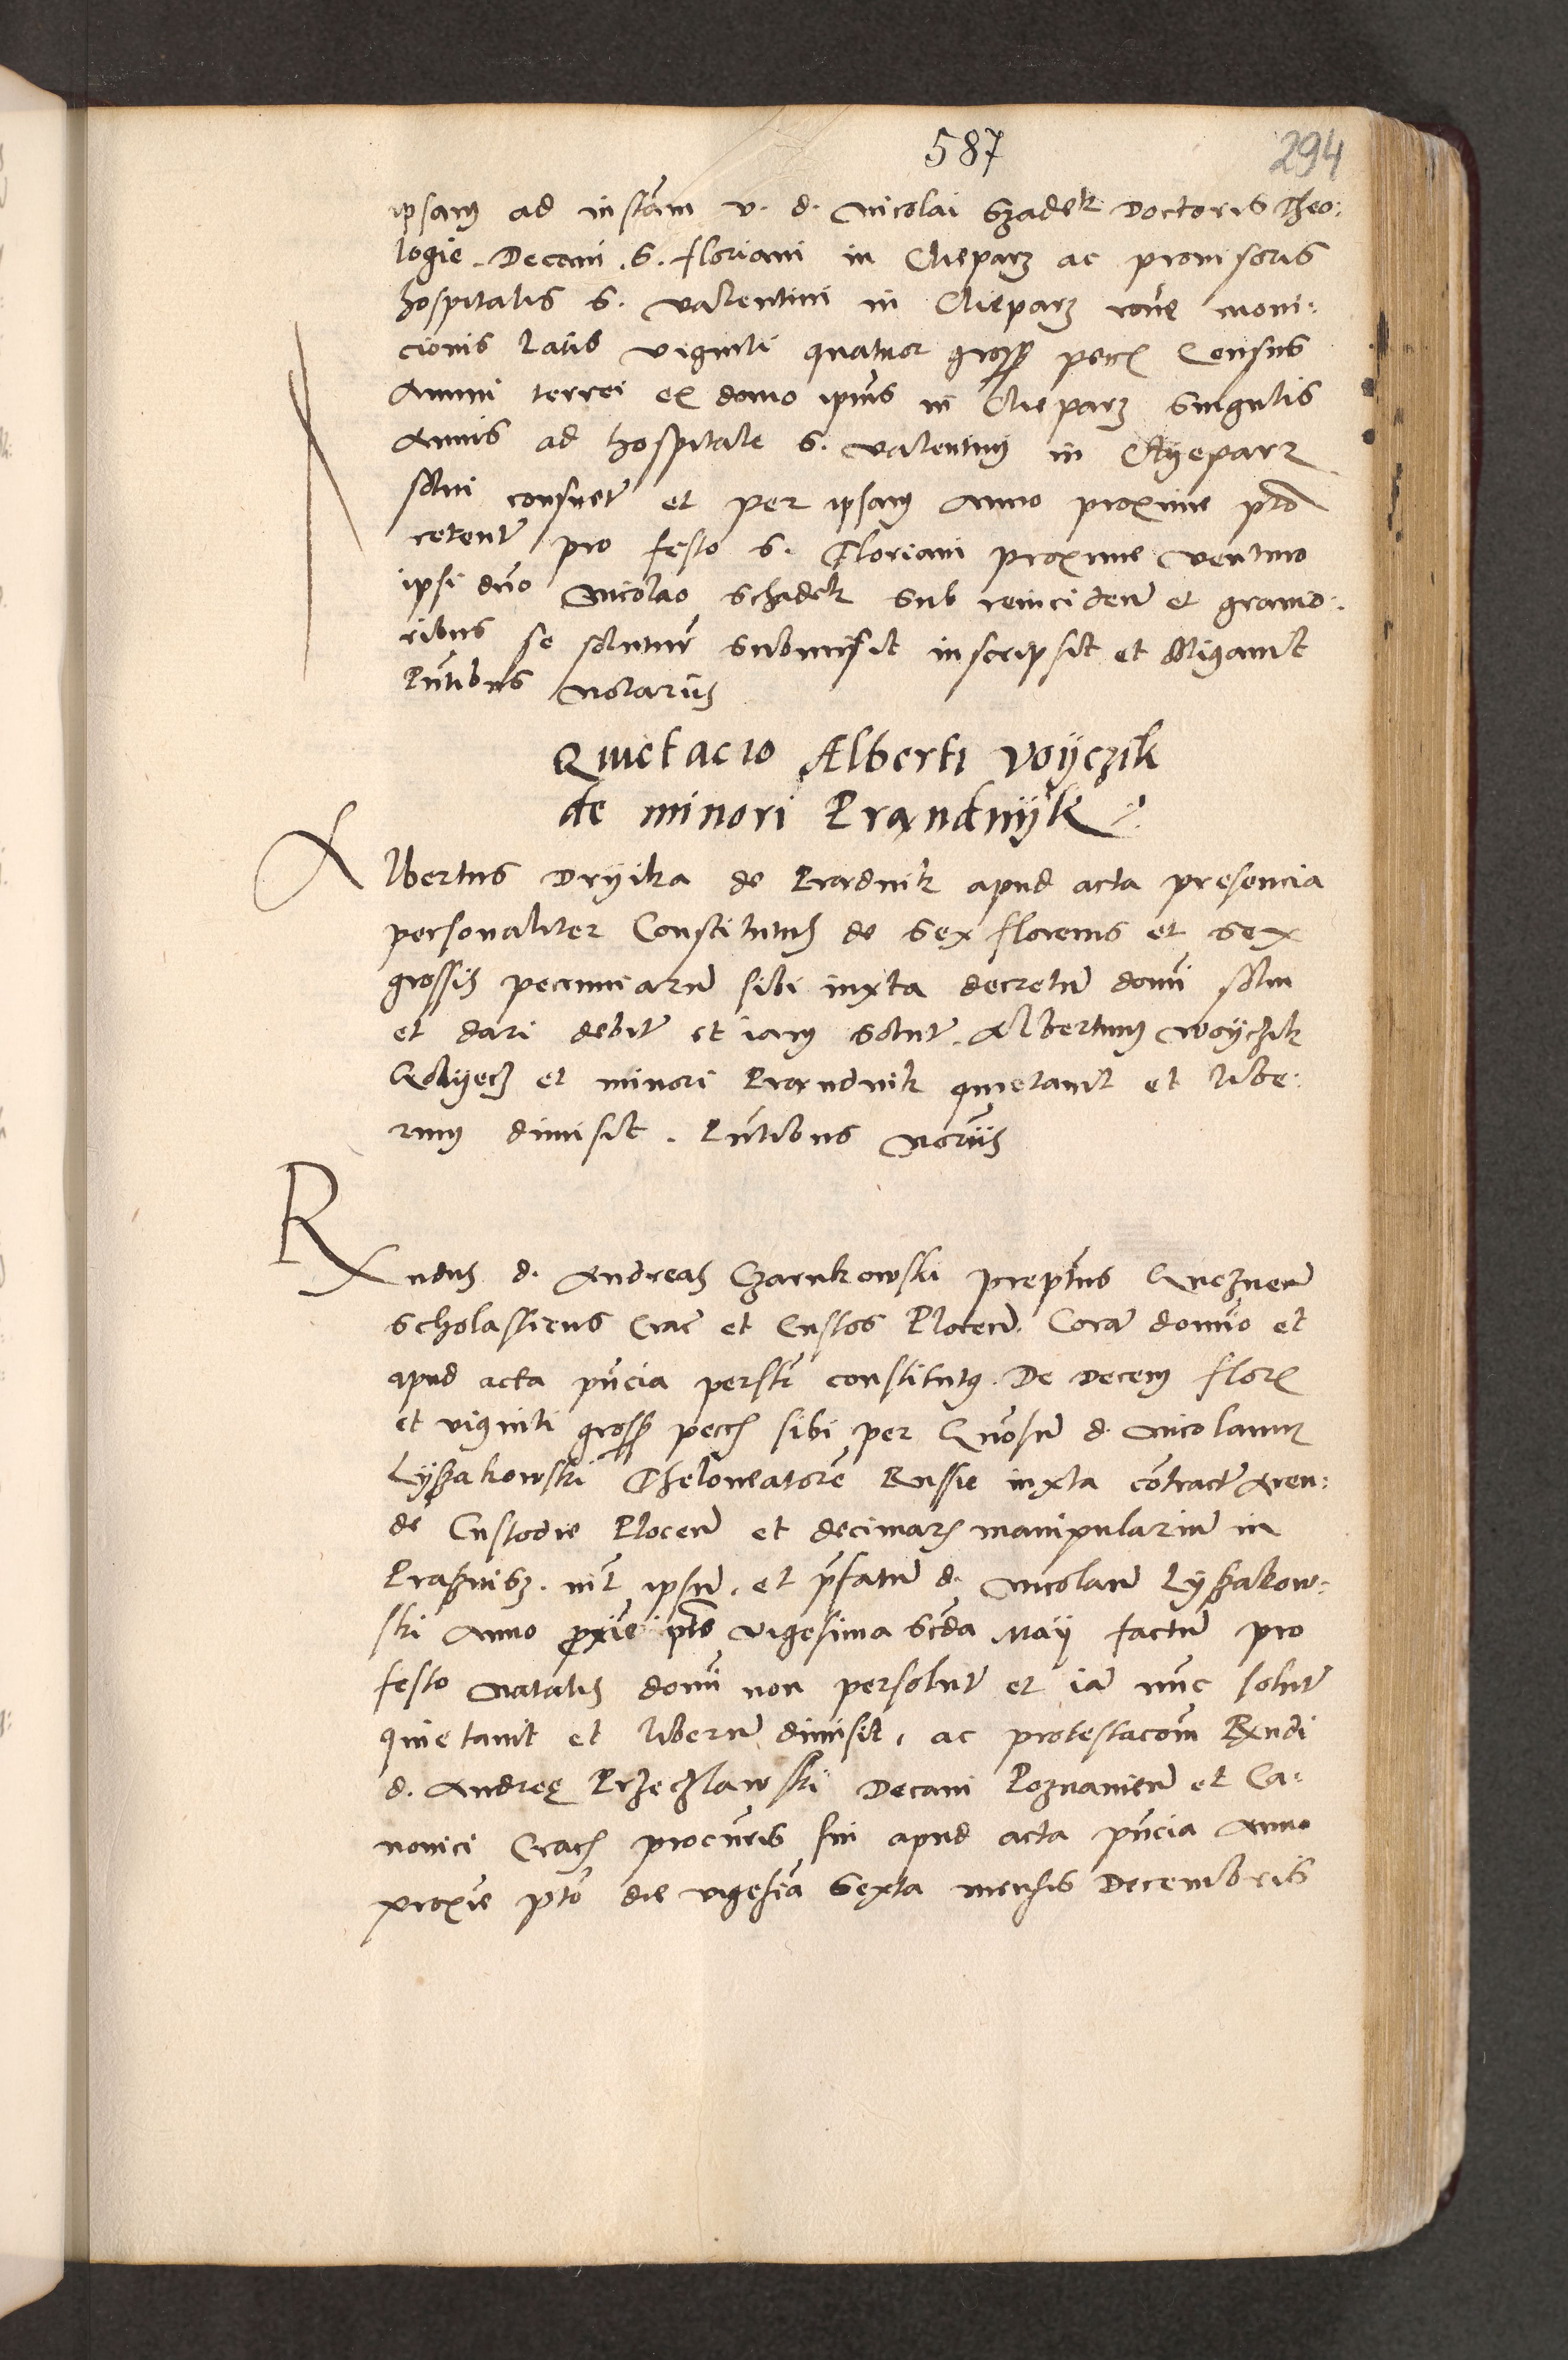 587
294
ipsam ad instam v. d. Nicolai Szadek Doctoris Theo:
logie. Decani. S. Floriani in Cleparz ac provisoris
hospitalis S. Valentini in Cleparz rone moni:
cionis latis viginti quatuor gross pecc Census
Annui terrei ex domo ipius in Cleparz singulis
Annis ad hospitale S. Valentinj in Clyeparz
solui consuet et per ipsam Anno proxime pto
retent pro festo S. Floriani proxime venturo
ipsi dno Nicolao Schadek sub reinciden et gravio:
ribus se soluturu submisit inscripsit et obligavit
Pntibus Notarijs
Quietacio Alberti Voyczik
de minori Prandnyk
Albertus Dryika de Pradnik apud acta presencia
personaliter Constitutus de sex florenis et sex
grossis pecuniarum sibi iuxta decretu domi solui
et dari debit et iam solut. Albertum Woyczik
Kmyecz et minori Prandnik quietavit et libe:
rum dimisit. Pntibus Norijs
Rxndus d. Andreas Czarnkowski preptus Gneznen
Scholasticus Crac et Custos Plocen. Cora domino et
apud acta pncia personlr constitutus. De Decem flor
et viginti gross pecc sibi per Gnosum d. Nicolaum
Lyssakowski Theloneatore Russie iuxta contractu Aren:
de Custodie Plocen et decimar manipularium in
Prasznisz. intr ipsum. et pfatum d. Nicolaum Lyssakow:
ski Anno proxie pto vigesima scda May factum pro
festo Natalis domi non persolut et ia nunc solut
quietavit et liberum dimisit, ac protestacom Rxndi
d. Andree Przeczlawski Decani Poznanien et Ca:
nonici Crac procuris sui apud acta pncia Anno
proxie pto die vigesia sexta mensis Decembris